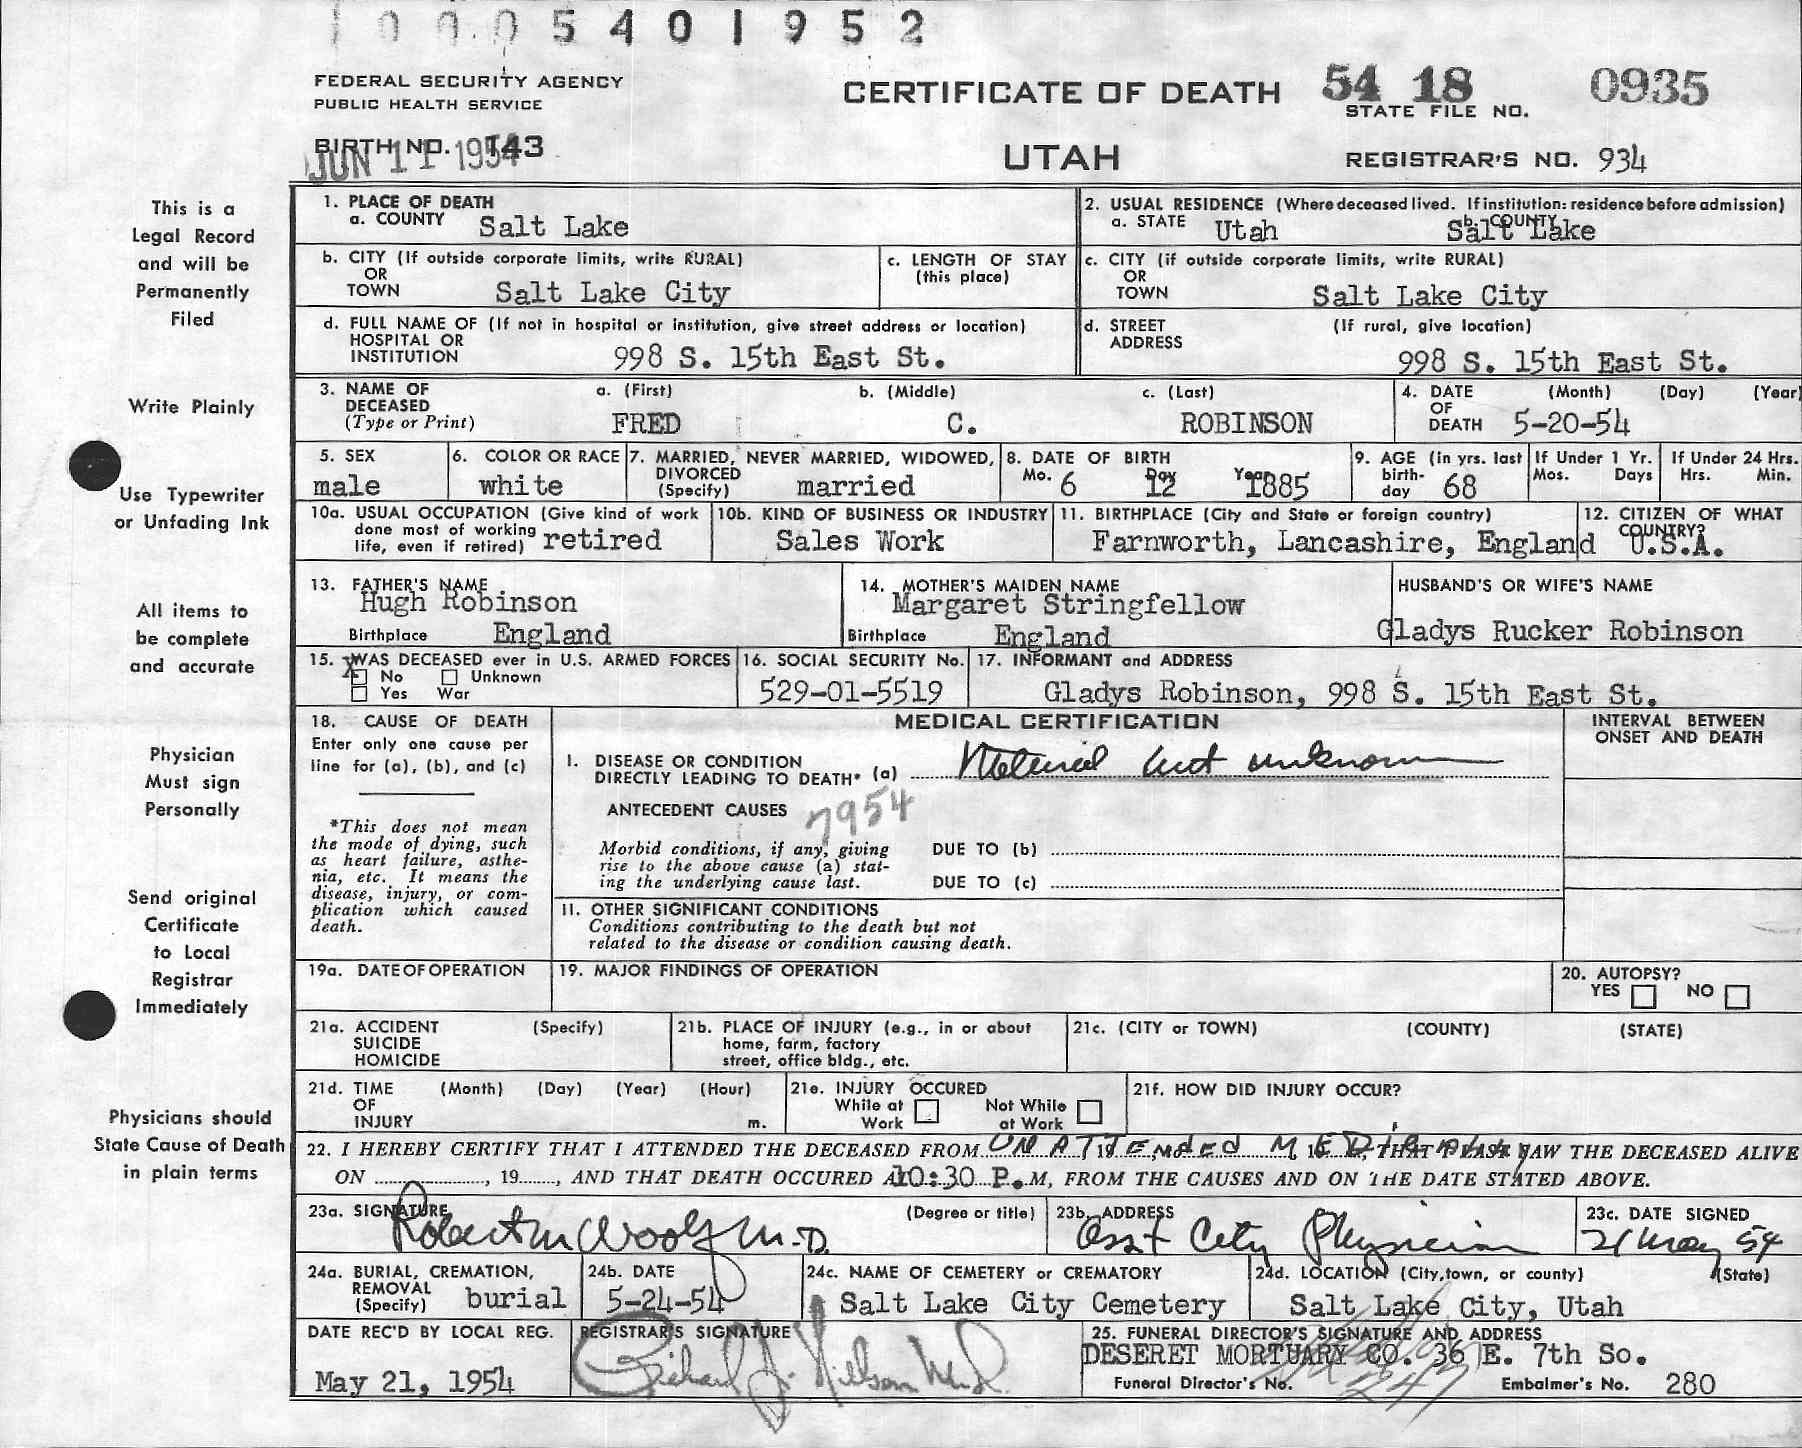 1 0 0 0 5 4 0 1 9 5 2
FEDERAL SECURITY AGENCY
PUBLIC HEALTH SERVICE
CERTIFICATE OF DEATH
54 18 0935
STATE FILE NO.
BIRTH NO. 143
JUN 11 1954
UTAH
REGISTRAR'S NO. 934
This is a
Legal Record
and will be
Permanently
Filed
Write Plainly
Use Typewriter
or Unfading Ink
All items to
be complete
and accurate
Physician
Must sign
Personally
Send original
Certificate
to Local
Registrar
Immediately
Physicians should
State Cause of Death
in plain terms
1. PLACE OF DEATH
a. COUNTY Salt Lake
2. USUAL RESIDENCE (Where deceased lived. If institution: residence before admission)
a. STATE Utah b. COUNTY Salt Lake
b. CITY (If outside corporate limits, write RURAL)
OR
TOWN Salt Lake City
c. LENGTH OF STAY
(this place)
c. CITY (if outside corporate limits, write RURAL)
OR
TOWN Salt Lake City
d. FULL NAME OF (If not in hospital or institution, give street address or location)
HOSPITAL OR
INSTITUTION 998 S. 15th East St.
d. STREET (If rural, give location)
ADDRESS
998 S. 15th East St.
3. NAME OF a. (First) b. (Middle) c. (Last)
DECEASED
(Type or Print) FRED C. ROBINSON
4. DATE (Month) (Day) (Year)
OF
DEATH 5-20-54
5. SEX
male
6. COLOR OR RACE
white
7. MARRIED, NEVER MARRIED, WIDOWED,
DIVORCED
(Specify) married
8. DATE OF BIRTH
Mo. 6 Day 12 Year 1885
9. AGE (in yrs. last
birth-
day 68
If Under 1 Yr.
Mos. Days
If Under 24 Hrs.
Hrs. Min.
10a. USUAL OCCUPATION (Give kind of work
done most of working
life, even if retired) retired
10b. KIND OF BUSINESS OR INDUSTRY
Sales Work
11. BIRTHPLACE (City and State or foreign country)
Farnworth, Lancashire, England
12. CITIZEN OF WHAT
COUNTRY?
U.S.A.
13. FATHER'S NAME
Hugh Robinson
Birthplace England
14. MOTHER'S MAIDEN NAME
Margaret Stringfellow
Birthplace England
HUSBAND'S OR WIFE'S NAME
Gladys Rucker Robinson
15. WAS DECEASED ever in U.S. ARMED FORCES
X No Unknown
Yes War
16. SOCIAL SECURITY No.
529-01-5519
17. INFORMANT and ADDRESS
Gladys Robinson, 998 S. 15th East St.
18. CAUSE OF DEATH
Enter only one cause per
line for (a), (b), and (c)
*This does not mean
the mode of dying, such
as heart failure, asthe-
nia, etc. It means the
disease, injury, or com-
plication which caused
death.
MEDICAL CERTIFICATION
INTERVAL BETWEEN
ONSET AND DEATH
I. DISEASE OR CONDITION
DIRECTLY LEADING TO DEATH* (a) Natural but unknown
ANTECEDENT CAUSES 7954
Morbid conditions, if any, giving
rise to the above cause (a) stat-
ing the underlying cause last.
DUE TO (b)
DUE TO (c)
11. OTHER SIGNIFICANT CONDITIONS
Conditions contributing to the death but not
related to the disease or condition causing death.
19a. DATE OF OPERATION
19. MAJOR FINDINGS OF OPERATION
20. AUTOPSY?
YES NO
21a. ACCIDENT (Specify)
SUICIDE
HOMICIDE
21b. PLACE OF INJURY (e.g., in or about
home, farm, factory
street, office bldg., etc.
21c. (CITY or TOWN) (COUNTY) (STATE)
21d. TIME (Month) (Day) (Year) (Hour)
OF
INJURY m.
21e. INJURY OCCURED
While at Not While
Work at Work
21f. HOW DID INJURY OCCUR?
22. I HEREBY CERTIFY THAT I ATTENDED THE DECEASED FROM UNATTENDED MEDICALLY, THAT I LAST SAW THE DECEASED ALIVE
ON , 19 , AND THAT DEATH OCCURED AT 10:30 P.M, FROM THE CAUSES AND ON THE DATE STATED ABOVE.
23a. SIGNATURE (Degree or title)
Robert M Woolf M.D.
23b. ADDRESS
Asst City Physician
23c. DATE SIGNED
21 May 54
24a. BURIAL, CREMATION,
REMOVAL
(Specify) burial
24b. DATE
5-24-54
24c. NAME OF CEMETERY or CREMATORY
Salt Lake City Cemetery
24d. LOCATION (City, town, or county) (State)
Salt Lake City, Utah
DATE REC'D BY LOCAL REG.
May 21, 1954
REGISTRAR'S SIGNATURE
Richard J. Nielson
25. FUNERAL DIRECTOR'S SIGNATURE AND ADDRESS
DESERET MORTUARY CO. 36 E. 7th So.
Funeral Director's No. Embalmer's No. 280